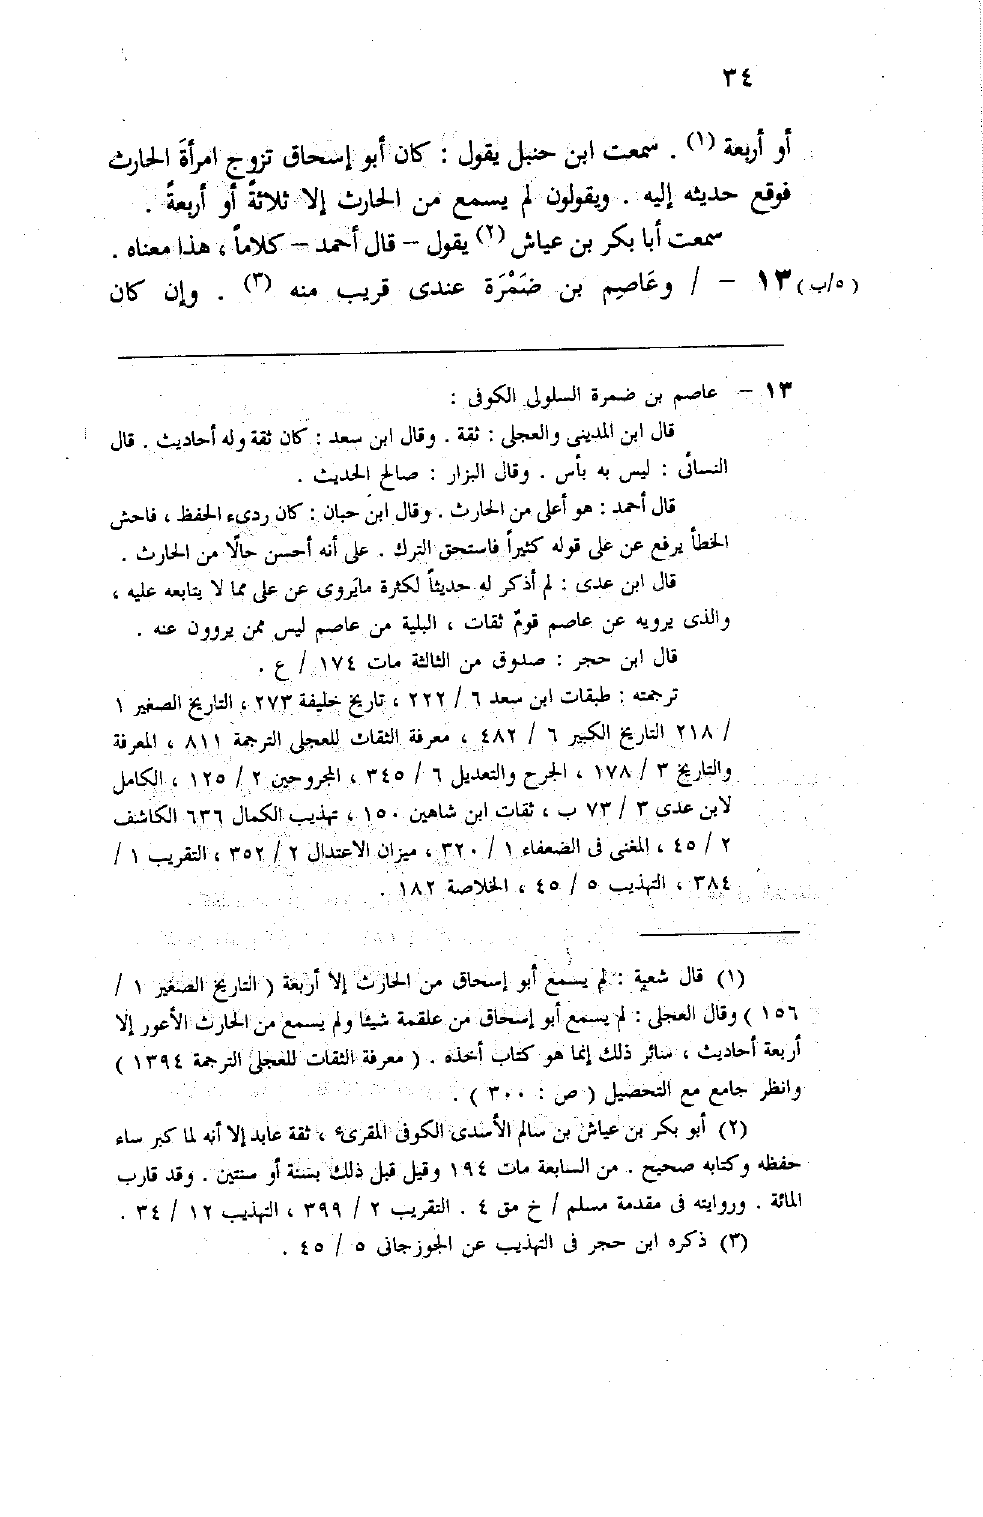 ٣٤
أو أربعة (١) . سمعت ابن حنبل يقول : كان أبو إسحاق تزوج امرأةَ الحارث
فوقع حديثه إليه . ويقولون لم يسمع من الحارث إلا ثلاثةً أو أربعةً .
سمعت أبا بكر بن عياش (٢) يقول – قال أحمد – كلاماً ، هذا معناه .
(٥/ب) ١٣ – / وعَاصِم بن ضَمْرَة عندى قريب منه (٣) . وإن كان
١٣ – عاصم بن ضمرة السلولى الكوفى :
قال ابن المدينى والعجلى : ثقة . وقال ابن سعد : كان ثقة وله أحاديث . قال
النسائى : ليس به بأس . وقال البزار : صالح الحديث .
قال أحمد : هو أعلى من الحارث . وقال ابن حبان : كان ردىء الحفظ ، فاحش
الخطأ يرفع عن على قوله كثيراً فاستحق الترك . على أنه أحسن حالًا من الحارث .
قال ابن عدى : لم أذكر له حديثاً لكثرة مايَروى عن على مما لا يتابعه عليه ،
والذى يرويه عن عاصم قومٌ ثقات ، البلية من عاصم ليس ممن يروون عنه .
قال ابن حجر : صدوق من الثالثة مات ١٧٤ / ع .
ترجمته : طبقات ابن سعد ٦ / ٢٢٢ ، تاريخ خليفة ٢٧٣ ، التاريخ الصغير ١
/ ٢١٨ التاريخ الكبير ٦ / ٤٨٢ ، معرفة الثقات للعجلى الترجمة ٨١١ ، المعرفة
والتاريخ ٣ / ١٧٨ ، الجرح والتعديل ٦ / ٣٤٥ ، المجروحين ٢ / ١٢٥ ، الكامل
لابن عدى ٣ / ٧٣ ب ، ثقات ابن شاهين ١٥٠ ، تهذيب الكمال ٦٣٦ الكاشف
٢ / ٤٥ ، المغنى فى الضعفاء ١ / ٣٢٠ ، ميزان الاعتدال ٢ / ٣٥٢ ، التقريب ١ /
٣٨٤ ، التهذيب ٥ / ٤٥ ، الخلاصة ١٨٢ .
(١) قال شعبة : لم يسمع أبو إسحاق من الحارث إلا أربعة ( التاريخ الصغير ١ /
١٥٦ ) وقال العجلى : لم يسمع أبو إسحاق من علقمة شيئا ولم يسمع من الحارث الأعور إلا
أربعة أحاديث ، سائر ذلك إنما هو كتاب أخذه . ( معرفة الثقات للعجلى الترجمة ١٣٩٤ )
وانظر جامع مع التحصيل ( ص : ٣٠٠ ) .
(٢) أبو بكر بن عياش بن سالم الأسدى الكوفى المقرىء ، ثقة عابد إلا أنه لما كبر ساء
حفظه وكتابه صحيح . من السابعة مات ١٩٤ وقيل قبل ذلك بسنة أو سنتين . وقد قارب
المائة . وروايته فى مقدمة مسلم / خ مق ٤ . التقريب ٢ / ٣٩٩ ، التهذيب ١٢ / ٣٤ .
(٣) ذكره ابن حجر فى التهذيب عن الجوزجانى ٥ / ٤٥ .